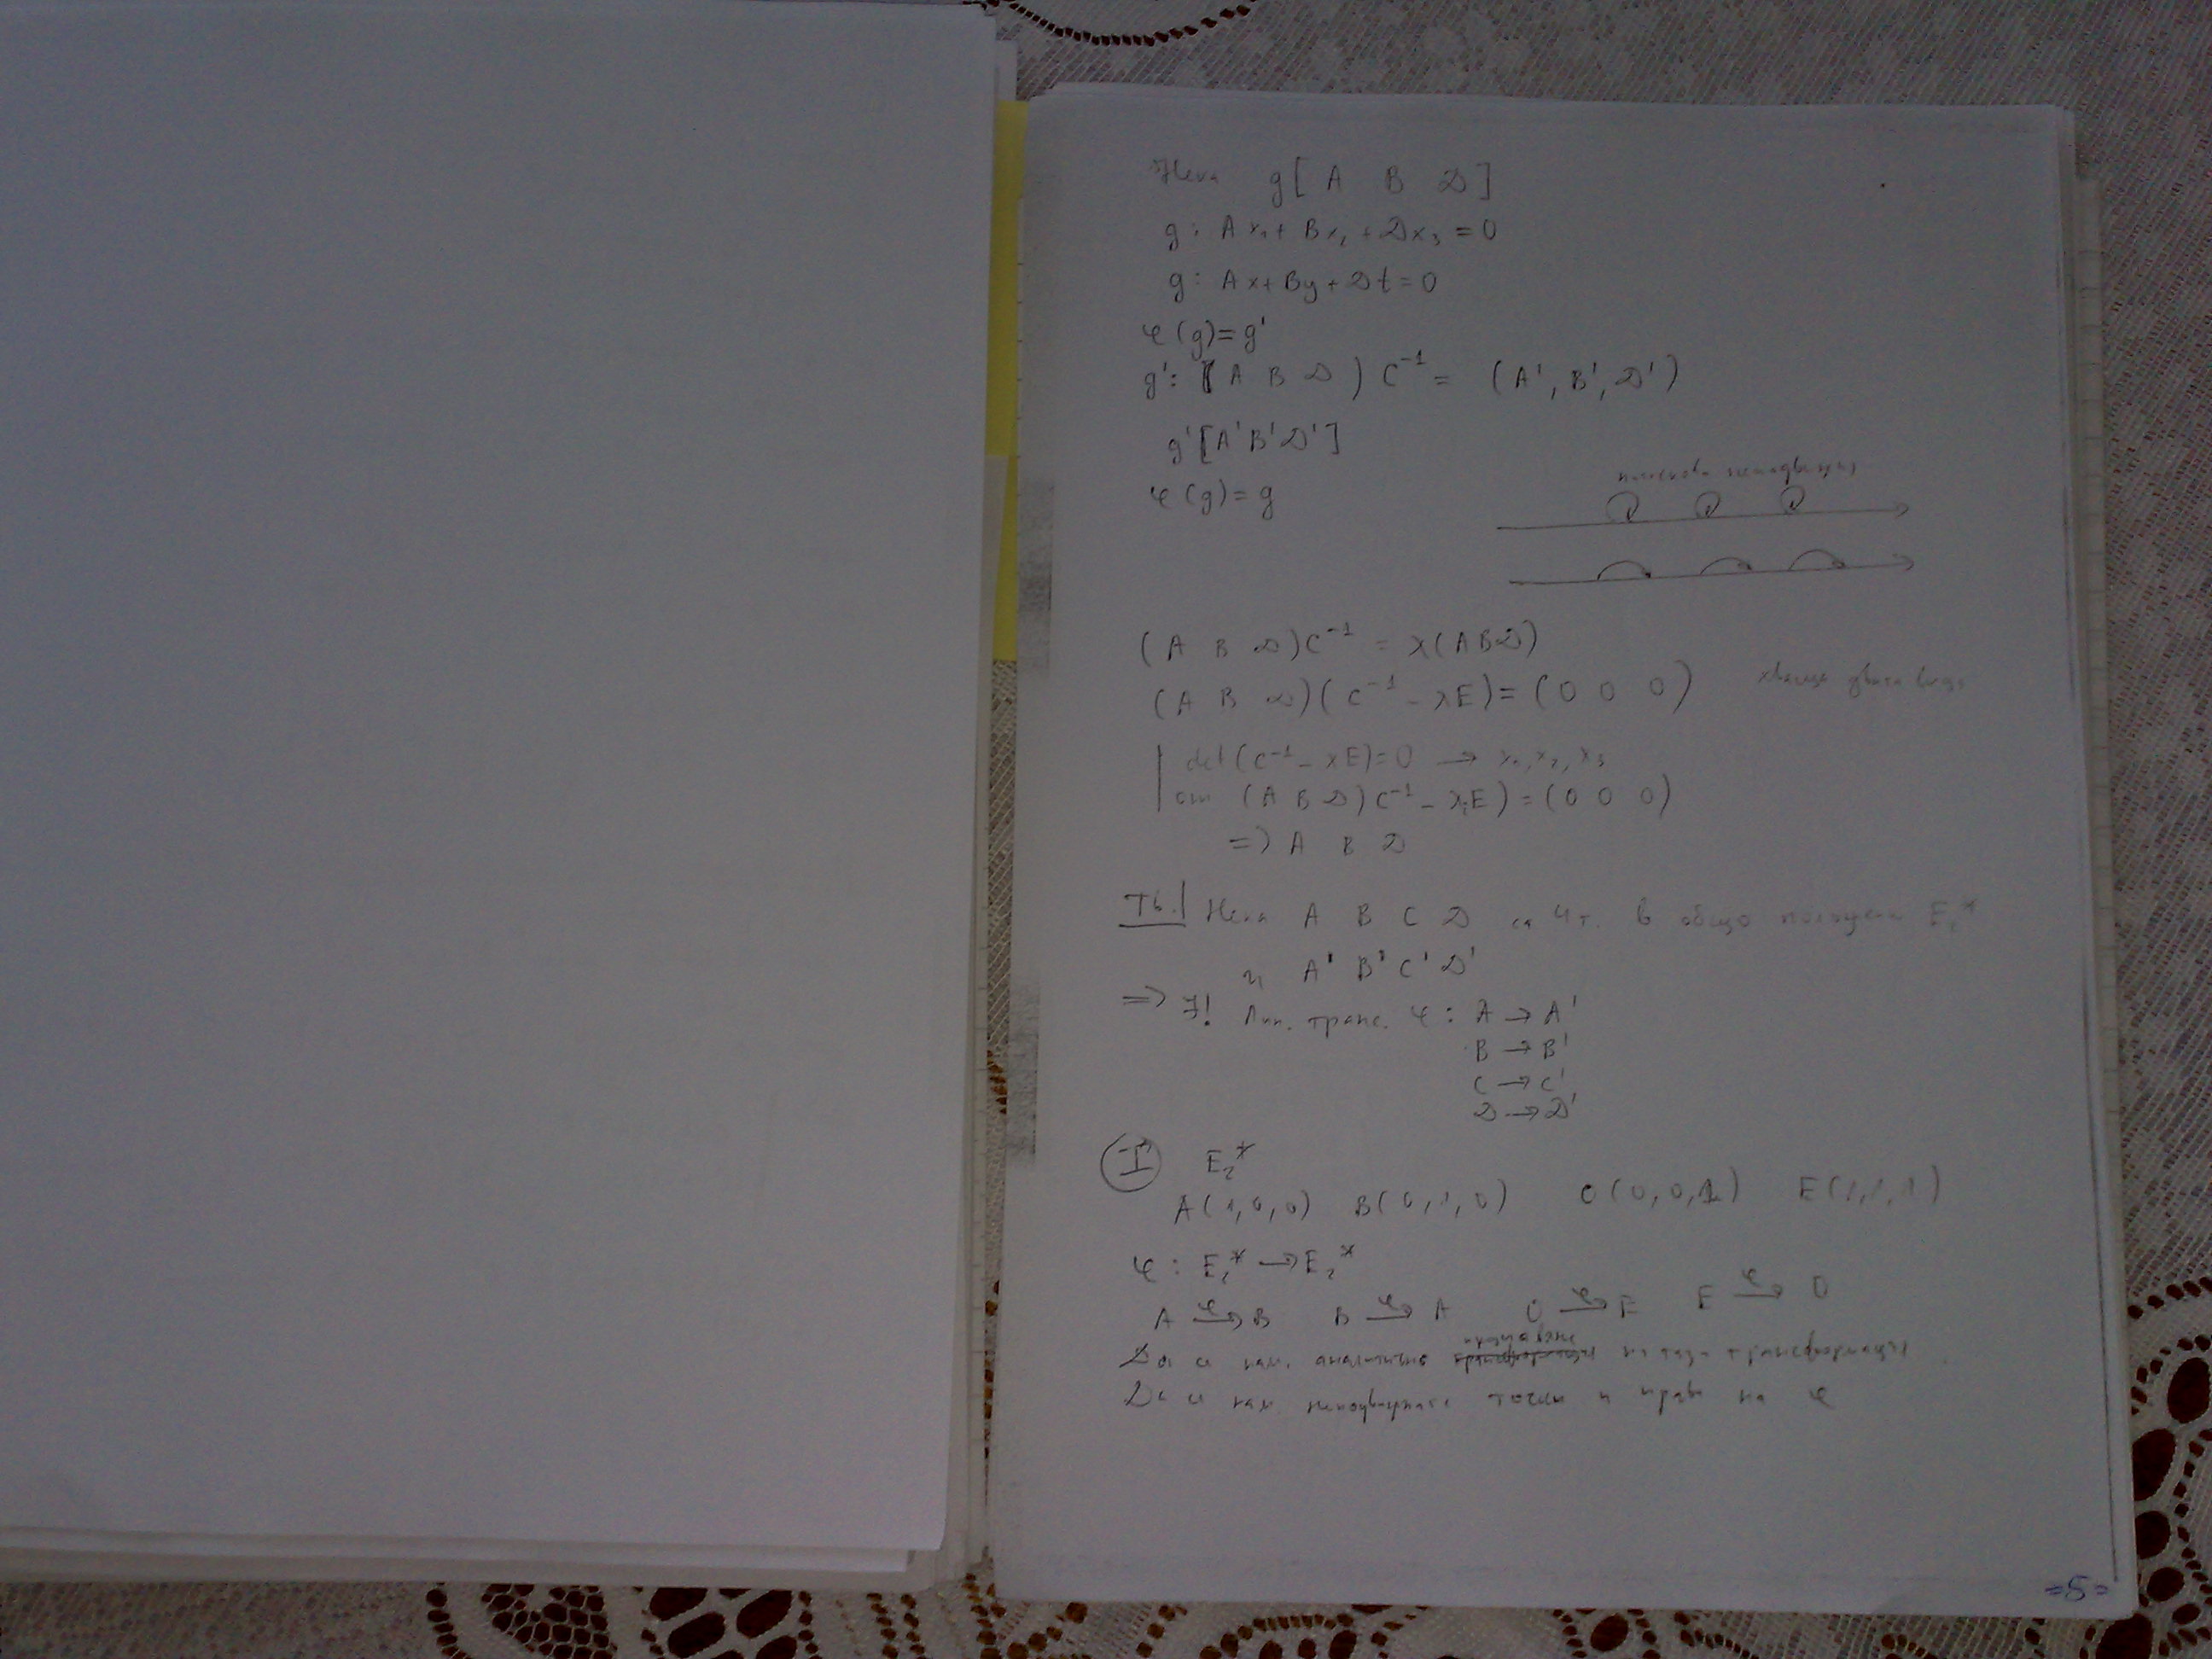 Нека g [ A B D ]
g: Ax₁ + Bx₂ + Dx₃ = 0
g: Ax + By + Dt = 0
φ(g) = g'
g': (A B D) C⁻¹ = (A', B', D')
g' [A' B' D']
φ(g) = g
(A B D) C⁻¹ = λ(A B D)
(A B D)(C⁻¹ - λE) = (0 0 0)
det(C⁻¹ - λE) = 0 → λ₁, λ₂, λ₃
от (A B D)(C⁻¹ - λᵢE) = (0 0 0)
=> A B D
Тв. Нека A B C D са 4 т. в общо E₂*
и A' B' C' D'
=> ∃! Лин. транс. φ: A → A'
B → B'
C → C'
D → D'
I E₂*
A(1,0,0) B(0,1,0) O(0,0,1) E(1,1,1)
φ: E₂* → E₂*
A φ→ B B φ→ A O φ→ E E φ→ O
Да се нам. аналитично на тази трансформация
Да се нам неподвижните точки и прави на φ
=5=